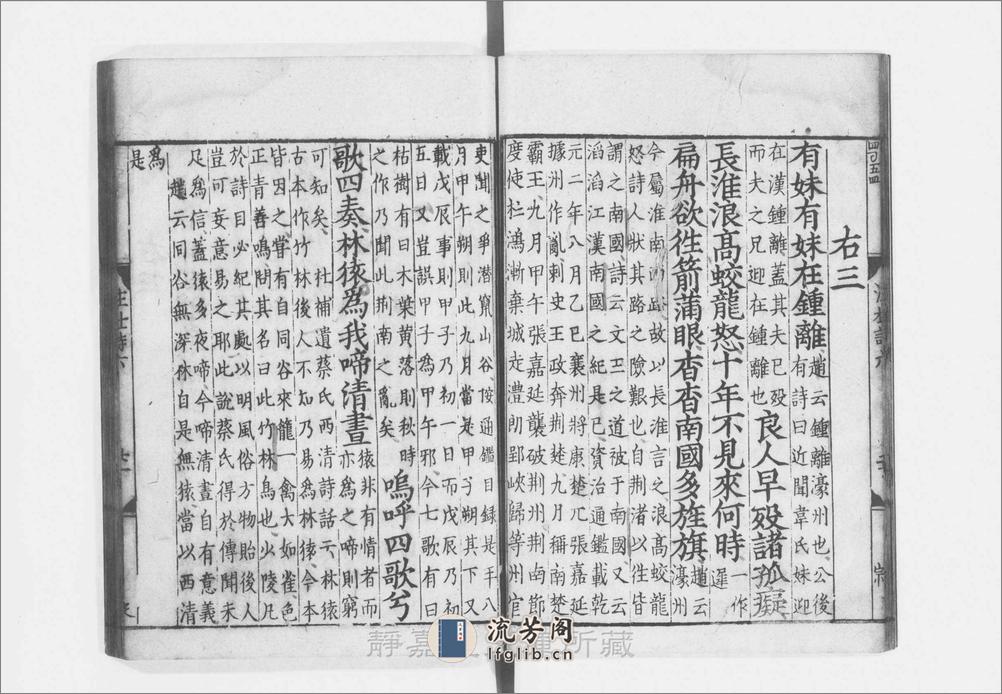 右三
有妹有妹在鍾離趙云鍾離濠州也公後
在漢鍾離蓋其夫已歿有詩曰近聞韋氏妹迎
而夫之兄迎在鍾離也良人早歿諸孤癡
長淮浪高蛟龍怒十年不見來何時一作遲趙云濠州
今屬淮南西路故以長淮言之浪高蛟龍
怒詩人狀其路之險艱也自荆渚以往皆
扁舟欲往箭滿眼杳杳南國多旌旗
謂之南國詩云文王之道被于南國又云
滔滔江漢南國之紀是已資治通鑑載乾
元二年八月乙巳襄州將康楚元張嘉延
據州作亂刺史王政奔荆楚元自稱南楚
霸王九月甲午張嘉延襲破荆州荆南節
度使杜鴻漸棄城走澧朗郢峽歸等州官
吏聞之爭潛竄山谷按通鑑目録是年八
月甲午朔則此九月當是甲子朔其下又
載戊辰事則甲子乃初一日而戊辰乃初
五日又豈誤甲子為甲午邪今七歌有曰
枯樹有曰木葉黄落則秋時
之作乃聞此荆南之亂矣嗚呼四歌兮
歌四奏林猿為我啼清晝猿非有情者而亦為之啼則窮
可知矣 杜補遺蔡氏西清詩話云林猿
古本作竹林後人不知乃易為林猿今本
皆因之嘗有自同谷來籠一禽大如雀色
正青善鳴問其名曰此竹林鳥也少陵凡
於詩目必紀其處以明風俗方物貽後人
豈可妄意易之耶此說蔡氏得於傳聞未
足為信蓋猿多夜啼今啼清晝自有意義
趙云同谷無深林自是無猿當以西清
為
是
静嘉
所藏
流芳阁
lfglib.cn